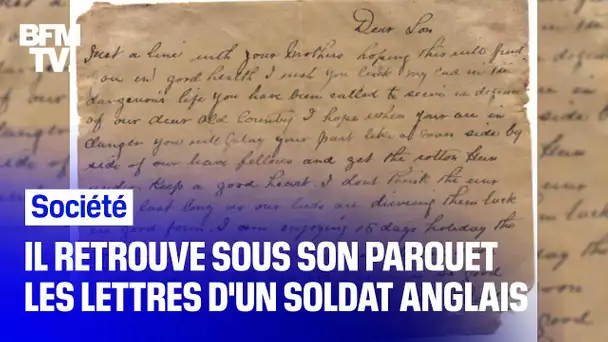 BFM
TV.
Dear Son
Just a line with your Brothers hoping this will find
you in good health I wish you luck my lad in the
dangerous life you have been called to serve in defence
of our dear Old Country I hope when your are in
danger you will play your part like a man side by
side of our brave fellows and get the rotten Hun
under. Keep a good heart. I dont think the war
last long as our lads are driving them back
in good form. I am enjoying 15 days holiday the
good
Société
IL RETROUVE SOUS SON PARQUET
LES LETTRES D'UN SOLDAT ANGLAIS